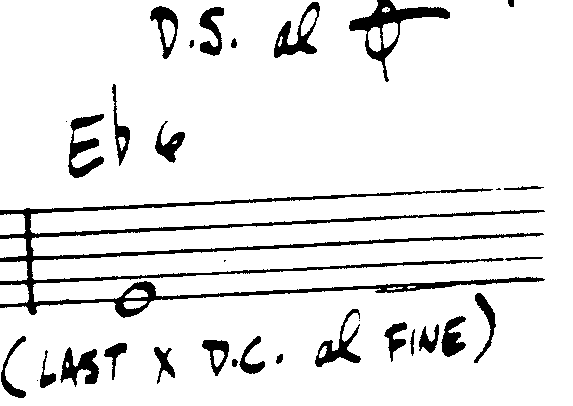 D.S. al 𝄌
E♭6
(LAST X D.C. al FINE)